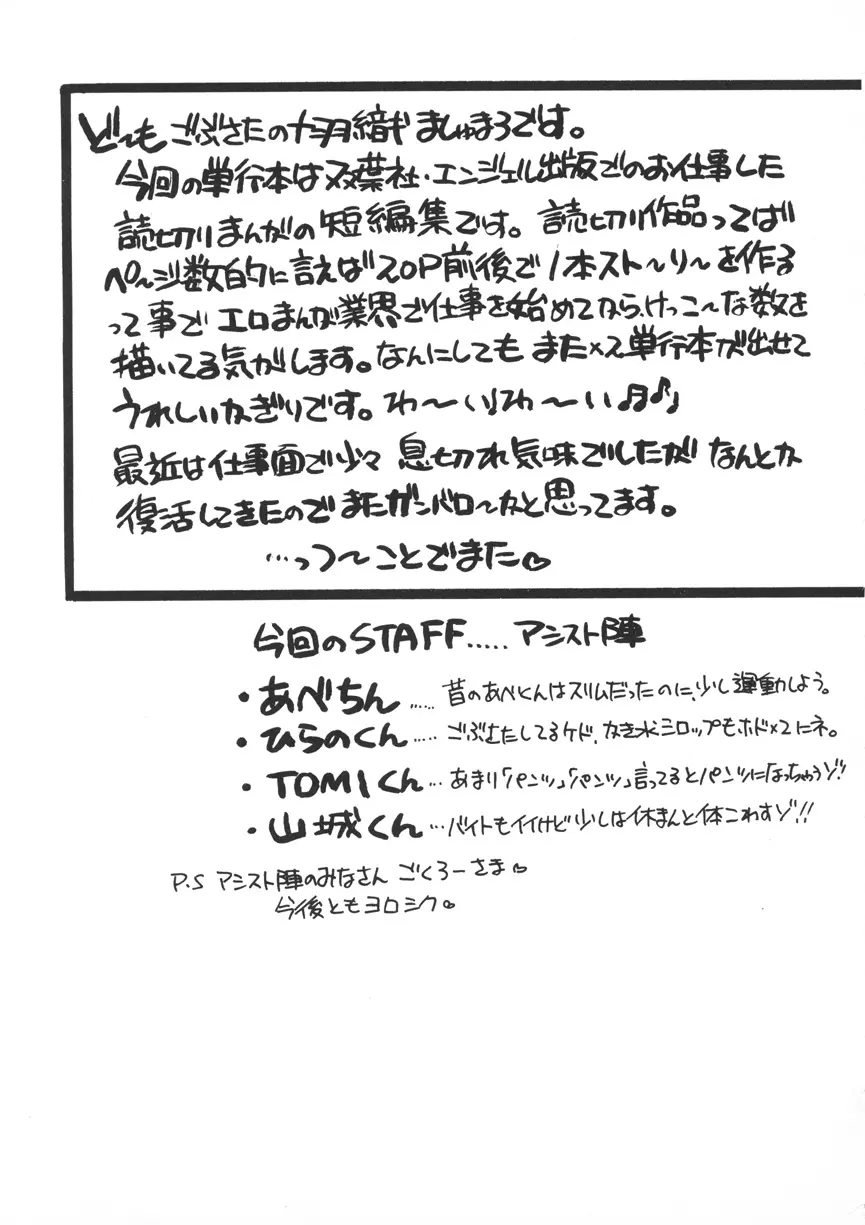 ど〜も ごぶさたの ましゅまろです。
今回の単行本は双葉社・エンジェル出版でのお仕事した
読切りまんがの短編集です。読切り作品ってば
ペ〜ジ数的に言えば20P前後で1本スト〜リ〜を作る
って事で エロまんが業界で仕事を始めてから、けっこ〜な数を
描いてる気がします。なんにしても また×2単行本が出せて
うれしいかぎりです。わ〜い♪わ〜い♫♪
最近は仕事面で少々 息切れ気味でしたが なんとか
復活してきたのでまたガンバロ〜かと思ってます。
…っつ〜ことでまた♡
今回のSTAFF..... アシスト陣
・あべちん ..... 昔のあべくんはスリムだったのに、少し運動しよう。
・ひらのくん ..... ごぶさたしてるケド、かき氷シロップもホド×2にネ。
・TOMIくん ... あまり「パンツ」「パンツ」言ってるとパンツになっちゃうゾ!!
・山城くん ... バイトもイイけど少しは休まんと体こわすゾ!!
P.S アシスト陣のみなさん ごくろーさま♡
今後ともヨロシク♡